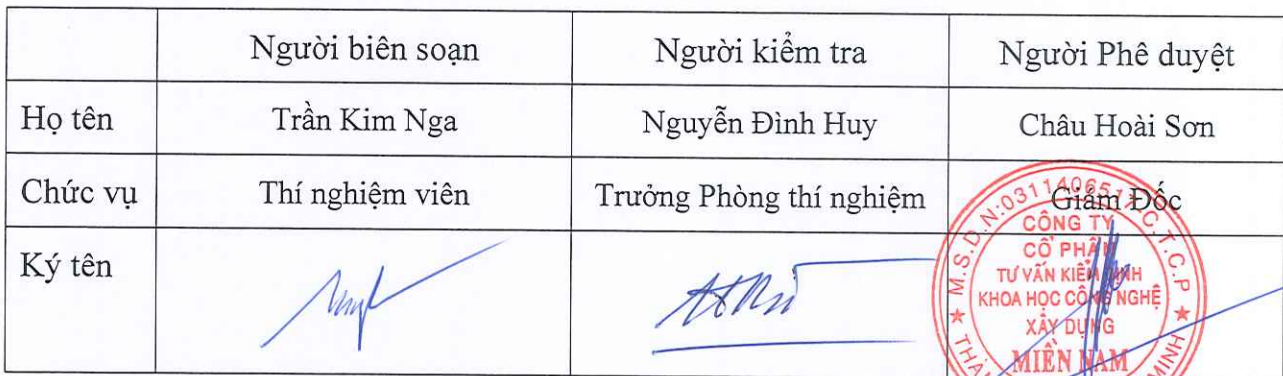 Người biên soạn Người kiểm tra Người Phê duyệt
Họ tên Trần Kim Nga Nguyễn Đình Huy Châu Hoài Sơn
Chức vụ Thí nghiệm viên Trưởng Phòng thí nghiệm Giám Đốc
Ký tên
M.S.D.N:0311406517 C.T.C.P
CÔNG TY
CỔ PHẦN
TƯ VẤN KIỂM ĐỊNH
KHOA HỌC CÔNG NGHỆ
XÂY DỰNG
MIỀN NAM